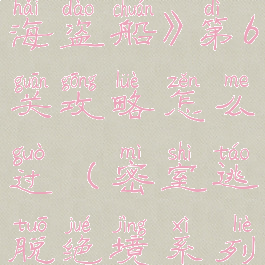 hǎi dào chuán dì
海盗船》第6
guān gōng lüè zěn me
关攻略怎么
guò mì shì táo
过(密室逃
tuō jué jìng xì liè
脱绝境系列